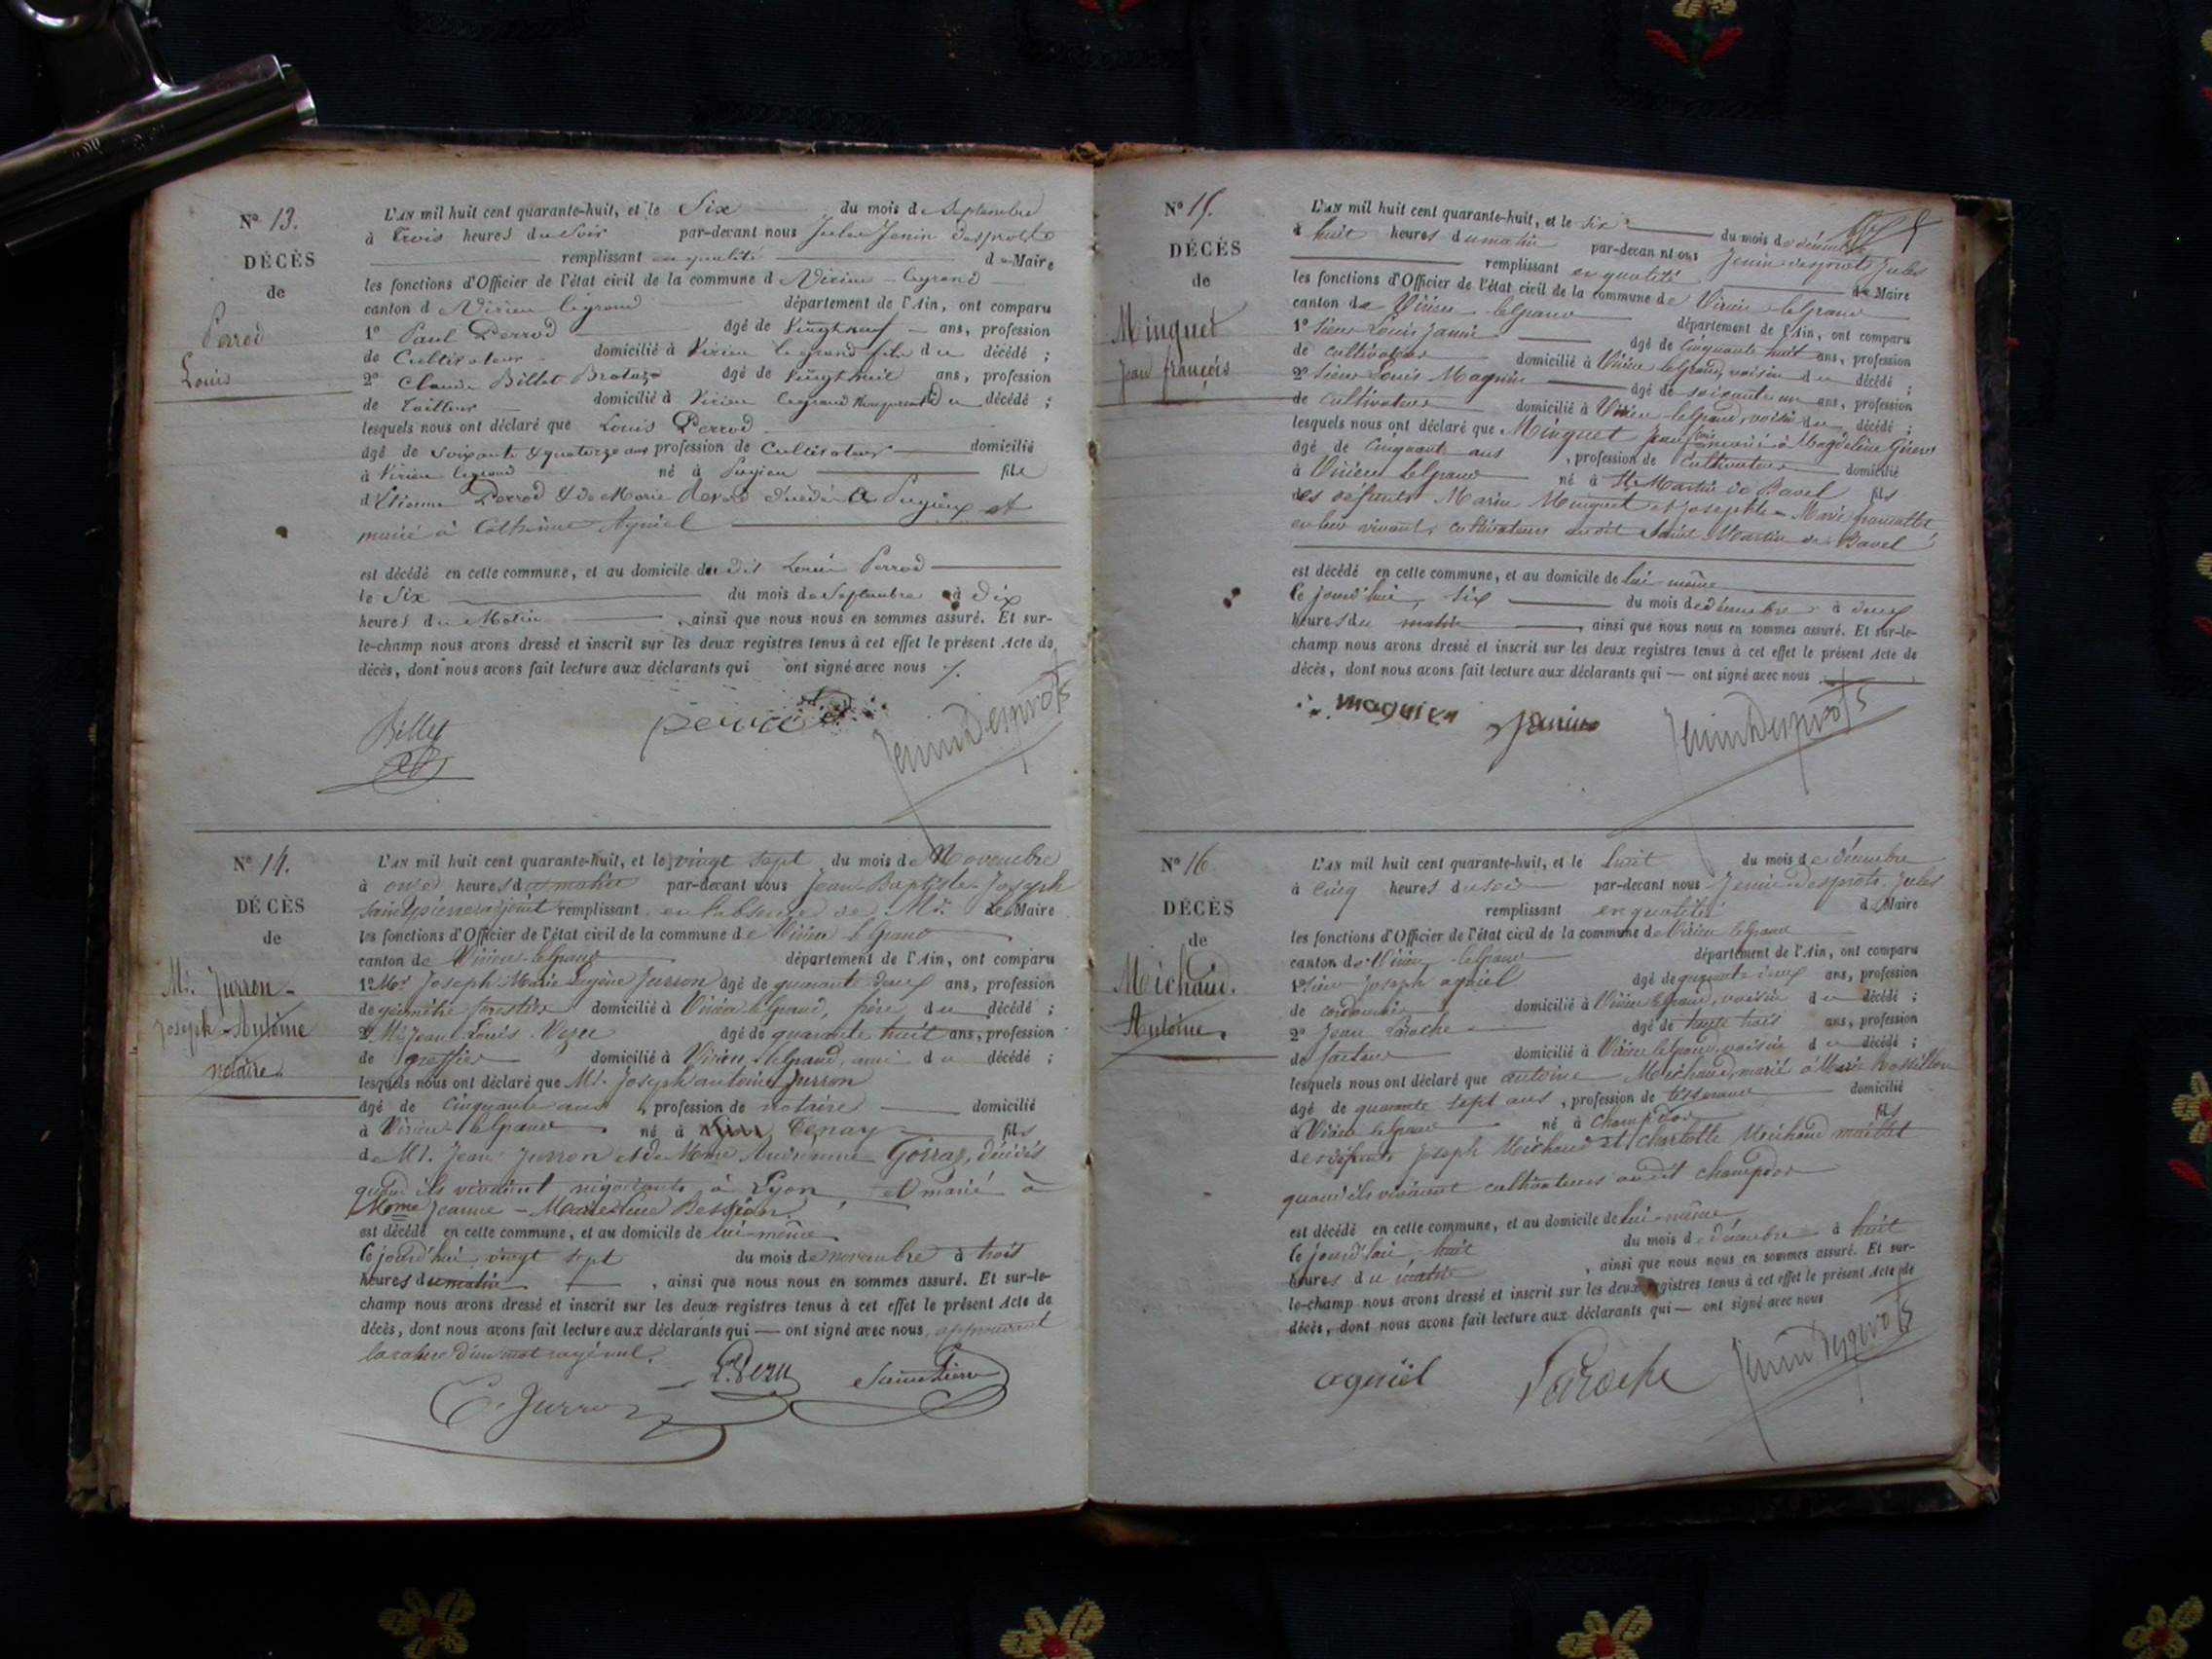 N° 13.
DÉCÈS
de
Perrod
Louis
L'AN mil huit cent quarante-huit, et le Six du mois de Septembre
à trois heures du Soir par-devant nous Jules Jenin Desprots
remplissant en qualité de Maire
les fonctions d'Officier de l'état civil de la commune d Virieu-legrand
canton d Virieu legrand département de l'Ain, ont comparu
1° Paul Perrod âgé de vingt neuf ans, profession
de Cultivateur domicilié à Virieu legrand fils du décédé ;
2° Claude Billet âgé de vingt huit ans, profession
de tailleur domicilié à Virieu legrand du décédé ;
lesquels nous ont déclaré que Louis Perrod
âgé de soixante & quatorze ans profession de Cultivateur domicilié
à Virieu legrand né à Pugieu fils
d'Etienne Perrod & de Marie décédés à Pugieu et
marié à Catherine Agniel
est décédé en cette commune, et au domicile du dit Louis Perrod
le Six du mois de Septembre à dix
heures du Matin , ainsi que nous nous en sommes assuré. Et sur-
le-champ nous avons dressé et inscrit sur les deux registres tenus à cet effet le présent Acte de
décès, dont nous avons fait lecture aux déclarants qui ont signé avec nous
Billet
perrod
Jenin Desprots
N° 14.
DÉCÈS
de
Mr. Jurron
Joseph-Antoine
notaire
L'AN mil huit cent quarante-huit, et le vingt sept du mois de Novembre
à onze heures du matin par-devant nous Jean-Baptiste-Joseph
Saintpierre adjoint remplissant en l'absence de Mr. le Maire
les fonctions d'Officier de l'état civil de la commune de Virieu leGrand
canton de Virieu-leGrand département de l'Ain, ont comparu
1° Mr Joseph Marie Eugène Jurron âgé de quarante deux ans, profession
de géomètre forestier domicilié à Virieu leGrand, frère du décédé ;
2° Mr Jean Louis Vezu âgé de quarante huit ans, profession
de greffier domicilié à Virieu-leGrand, ami du décédé ;
lesquels nous ont déclaré que Mr. Joseph antoine Jurron
âgé de cinquante ans , profession de notaire domicilié
à Virieu-leGrand né à Tenay fils
de Mr. Jean Jurron et de Mme Gorraz, décédés
quand ils vivaient négociants à Lyon, et marié à
Mme Jeanne
est décédé en cette commune, et au domicile de lui-même
Ce jourd'hui vingt sept du mois de novembre à trois
heures du matin , ainsi que nous nous en sommes assuré. Et sur-le-
champ nous avons dressé et inscrit sur les deux registres tenus à cet effet le présent Acte de
décès, dont nous avons fait lecture aux déclarants qui — ont signé avec nous, approuvant
la rature d'un mot rayé nul.
L. Vezu
Saintpierre
E. Jurron
N° 15.
DÉCÈS
de
Minguet
Jean françois
L'AN mil huit cent quarante-huit, et le six du mois de décembre
à huit heures du matin par-devant nous Jenin desprots Jules
remplissant en qualité de Maire
les fonctions d'Officier de l'état civil de la commune de Virieu leGrand
canton de Virieu leGrand département de l'Ain, ont comparu
1° Sieur Louis Janin âgé de cinquante huit ans, profession
de cultivateur domicilié à Virieu leGrand, voisin du décédé ;
2° Sieur Louis Magnin âgé de soixante un ans, profession
de cultivateur domicilié à Virieu-leGrand, voisin du décédé ;
lesquels nous ont déclaré que Minguet Jean fçois marié à Magdeleine
âgé de cinquante ans , profession de Cultivateur domicilié
à Virieu leGrand né à St. Martin de Bavel fils
des défunts Marin Minguet et Josephte-Marie
en leur vivant, cultivateurs au dit Saint Martin de Bavel
est décédé en cette commune, et au domicile de lui-même
Ce jourd'hui, six du mois de décembre à deux
heures du matin , ainsi que nous nous en sommes assuré. Et sur-le-
champ nous avons dressé et inscrit sur les deux registres tenus à cet effet le présent Acte de
décès, dont nous avons fait lecture aux déclarants qui — ont signé avec nous
magnien
Janin
Jenin Desprots
N° 16
DÉCÈS
de
Michaud.
Antoine.
L'AN mil huit cent quarante-huit, et le huit du mois de décembre
à cinq heures du soir par-devant nous Jenin-desprots Jules
remplissant en qualité de Maire
les fonctions d'Officier de l'état civil de la commune de Virieu leGrand
canton de Virieu-leGrand département de l'Ain, ont comparu
1° sieur Joseph agniel âgé de quarante deux ans, profession
de cordonnier domicilié à Virieu leGrand, voisin du décédé ;
2° Jean Paroche âgé de trente trois ans, profession
de facteur domicilié à Virieu leGrand, voisin du décédé ;
lesquels nous ont déclaré que antoine Michaud, marié à Marie
âgé de quarante sept ans , profession de tisserand domicilié
à Virieu leGrand né à Champdor fils
des défunts Joseph Michaud et Charlotte Michaud maillet
quand ils vivaient cultivateurs au dit champdor
est décédé en cette commune, et au domicile de lui-même
Ce jourd'hui huit du mois de décembre à huit
heures du matin , ainsi que nous nous en sommes assuré. Et sur-
le-champ nous avons dressé et inscrit sur les deux registres tenus à cet effet le présent Acte de
décès, dont nous avons fait lecture aux déclarants qui — ont signé avec nous
agniel
Paroche
Jenin Desprots